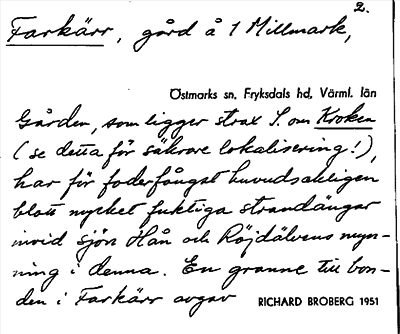 2.
Farkärr, gård å 1 Millmark,
Östmarks sn, Fryksdals hd, Värml. län
Gården, som ligger strax S. om Kroken
(se detta för säkrare lokalisering!),
har för foderfångst huvudsakligen
blott mycket fuktiga strandängar
invid sjön Hån och Röjdälvens myn-
ning i denna. En granne till bon-
den i Farkärr avgav RICHARD BROBERG 1951